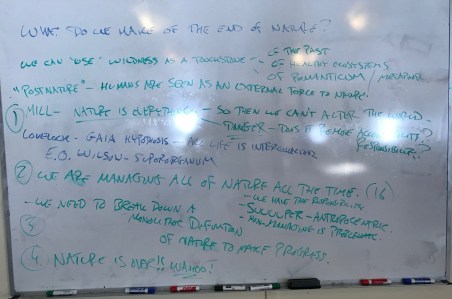 WHAT DO WE MAKE OF THE END OF NATURE?
WE CAN "USE" WILDNESS AS A TOUCHSTONE - OF THE PAST
OF HEALTHY ECOSYSTEMS
OF ROMANTICISM / METAPHOR
"POSTNATURE" - HUMANS ARE SEEN AS AN EXTERNAL FORCE TO NATURE.
① MILL - NATURE IS EVERYTHING - SO THEN WE CAN'T ALTER THE WORLD.
DANGER - DOES IT REMOVE
RESPONSIBILITY?
GAIA HYPOTHESIS - ALL LIFE IS INTERCONNECTED
E.O. WILSON -
② WE ARE MANAGING ALL OF NATURE ALL THE TIME. (16)
- WE HAVE THE RESPONSIBILITY
- ANTHROPOCENTRIC.
- WE NEED TO BREAK DOWN A
MONOLITHIC DEFINITION
OF NATURE TO MAKE PROGRESS.
③
④ NATURE IS OVER!! WAHOO!